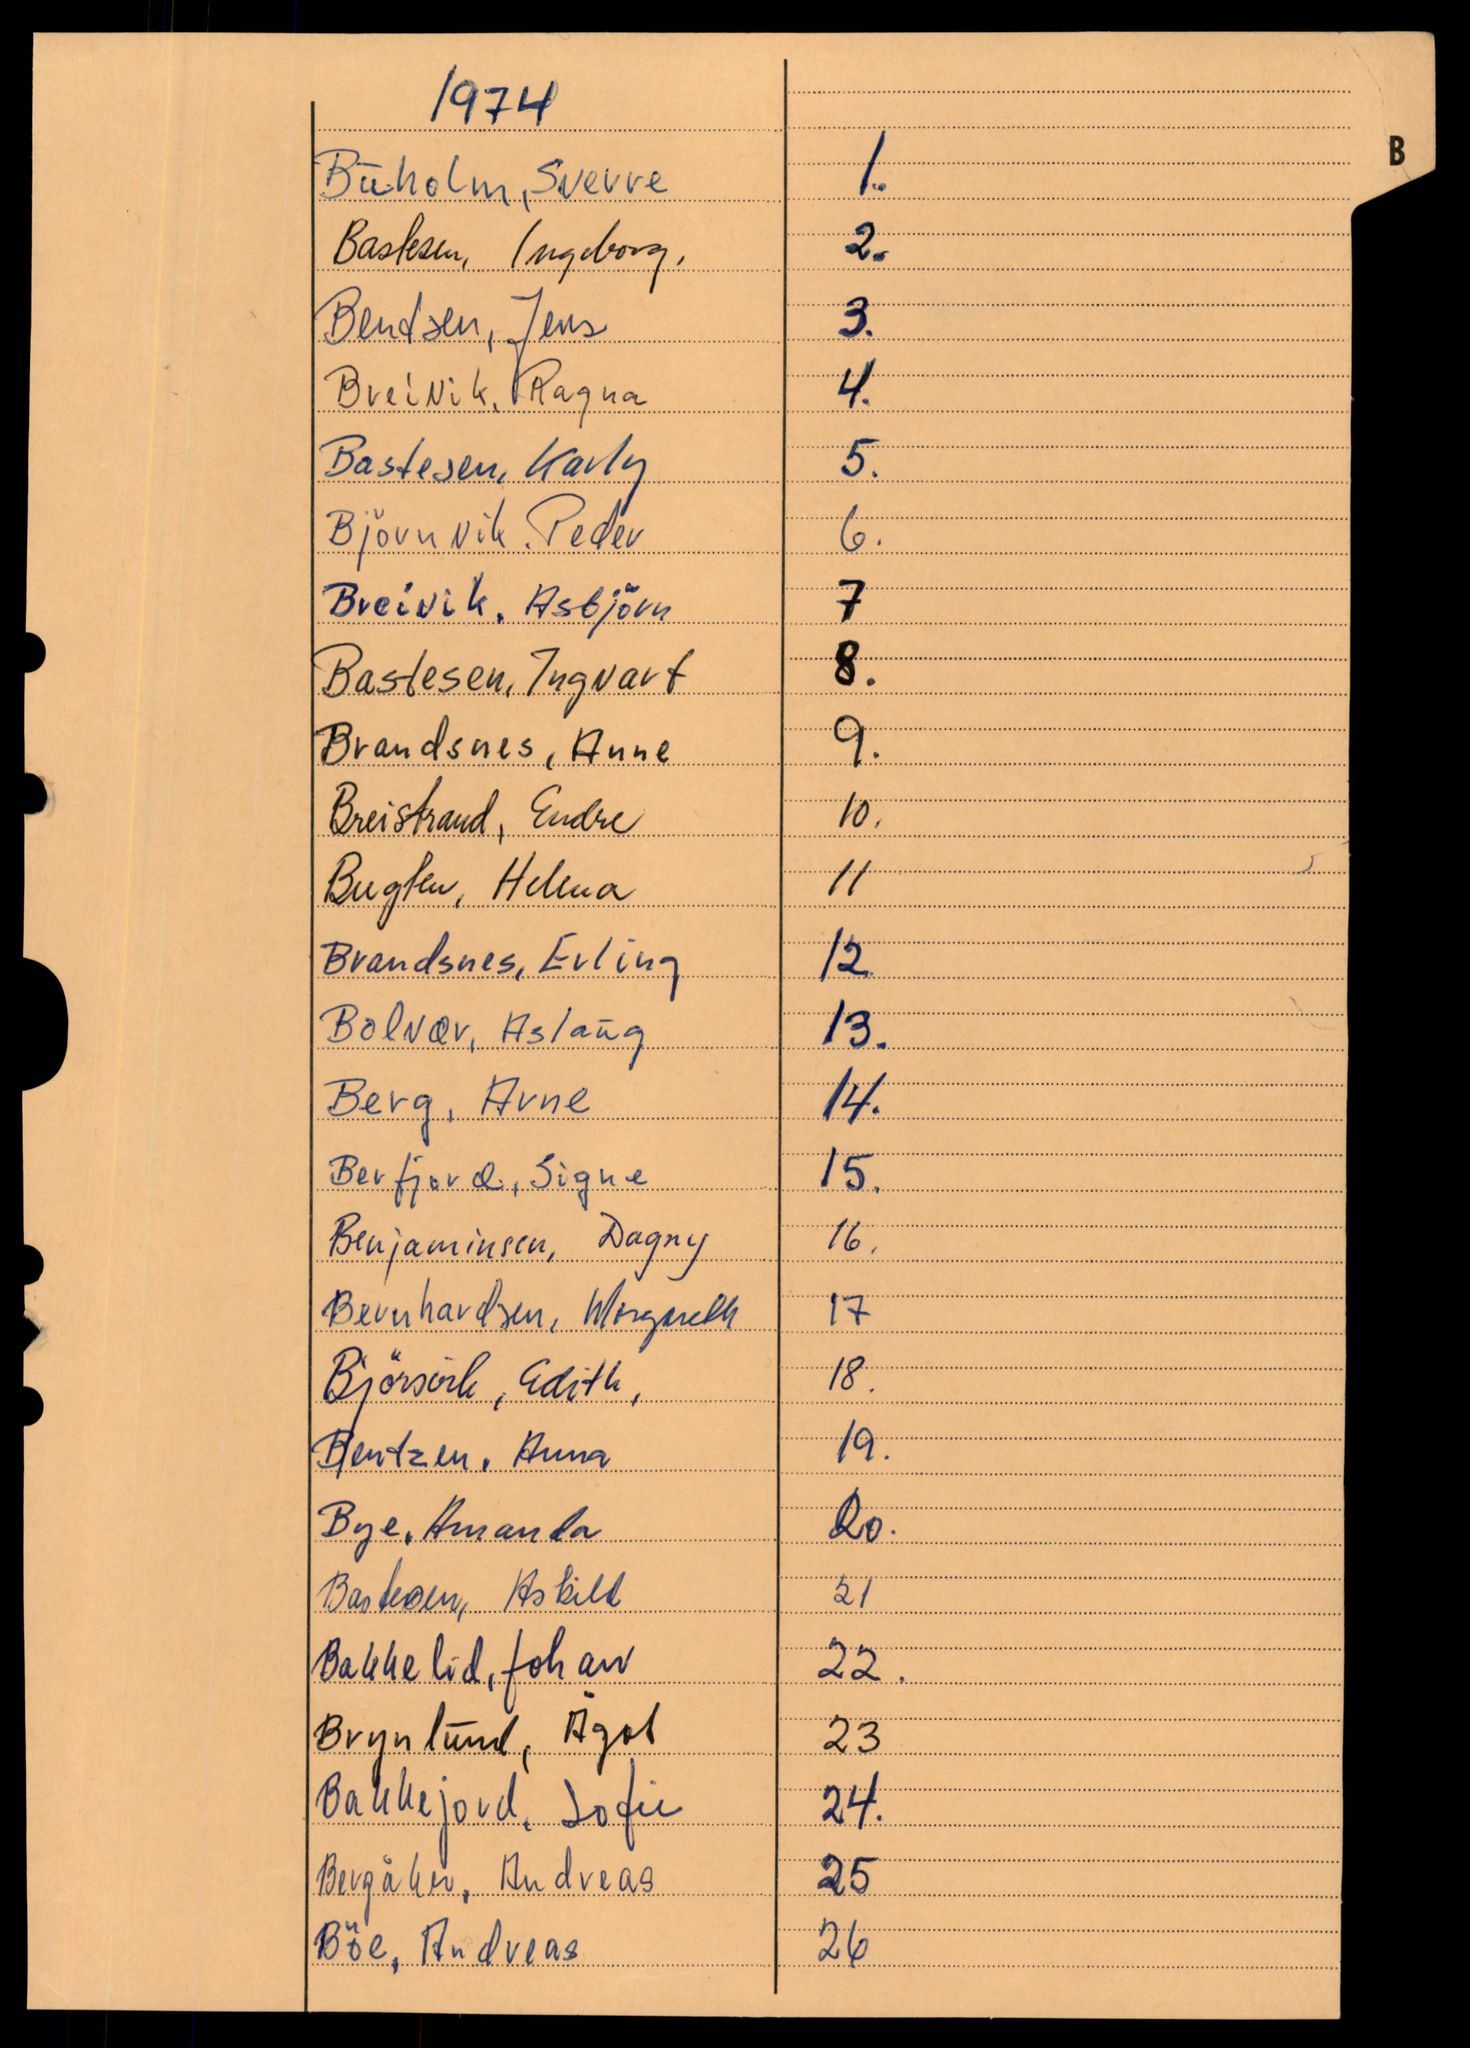 1974
B
Būholm, Sverre 1.
Bastesen, Ingeborg, 2.
Bendsen, Jens 3.
Breivik, Ragna 4.
Bastesen, Karly 5.
Björnvik. Peder 6.
Breivik, Asbjörn 7
Bastesen, Ingvart 8.
Brandsnes, Anne 9.
Breistrand, Endre 10.
Bugten, Helena 11
Brandsnes, Erling 12
Bolvær, Aslaūg 13.
Berg, Arne 14.
Berfjord, Signe 15.
Benjaminsen, Dagny 16.
Bernhardsen, Margareth 17
Björsvik, Edith, 18.
Bentzen, Anna 19.
Bye, Amanda 20.
Bastesen, Askild 21
Bakkelid, Johan 22.
Brynlūnd, Ågot 23
Bakkejord, Sofie 24.
Bergåker, Andreas 25
Böe, Andreas 26